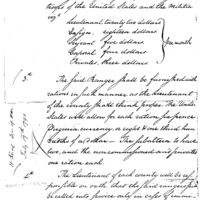 troops of the United States and the Militia
viz.
Lieutenant, twenty two dollars
Ensign, eighteen dollars
Serjeant, five dollars
Corporal, four dollars
Privates, three dollars
per month
3d.
The said Rangers shall be furnished with
rations in such manner as the Lieutenant
of the county shall think proper. The United
States will allow for each ration, six pence
Virginia currency, or eight & one third hun
dredths of a Dollar. The subalterns to have
two, and the noncommissioned and privates
one ration each.
4th.
The Lieutenant of each county will be res
ponsible on oath that the said rangers shall
be called into service only in cases of immi
July 17th 1790